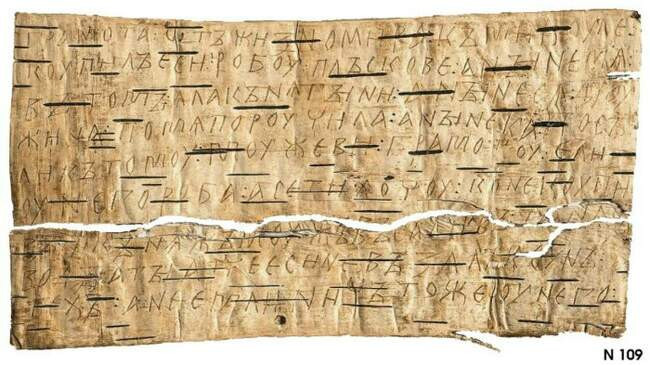 грамота : ѡтъ жизномира : къ микоуле :
коупилъ еси : робоу : плъскове : а ныне мѧ :
въ томъ : ѧла кънѧгыни : а ныне сѧ дроу
жина : по мѧ пороучила : а ныне ка : посъ
ли къ томоу : моужеви : грамотоу : е ли
оу него роба : а се ти хочоу : коне коупи
въ : и кънѧжъ моужъ въсадивъ : та на съ
воды : а ты атче еси не възалъ коунъ :
техъ : а не емли : ничъто же оу него :
N 109